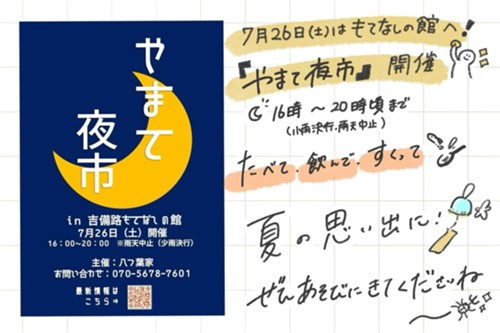 やまて
夜市
in 吉備路もてなしの館
7月26日（土）開催
16：00～20：00 ※雨天中止（少雨決行）
主催：八つ葉家
お問い合わせ：070-5678-7601
最新情報は
こちら→
7月26日(土)は もてなしの館へ!
『やまて夜市』 開催
16時 ～ 20時頃まで
(小雨決行、雨天中止)
たべて、飲んで、すくって
夏の思い出に!
ぜひあそびにきてくださいね